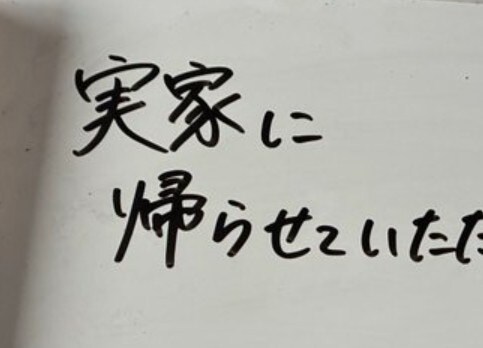 実家に
帰らせていた